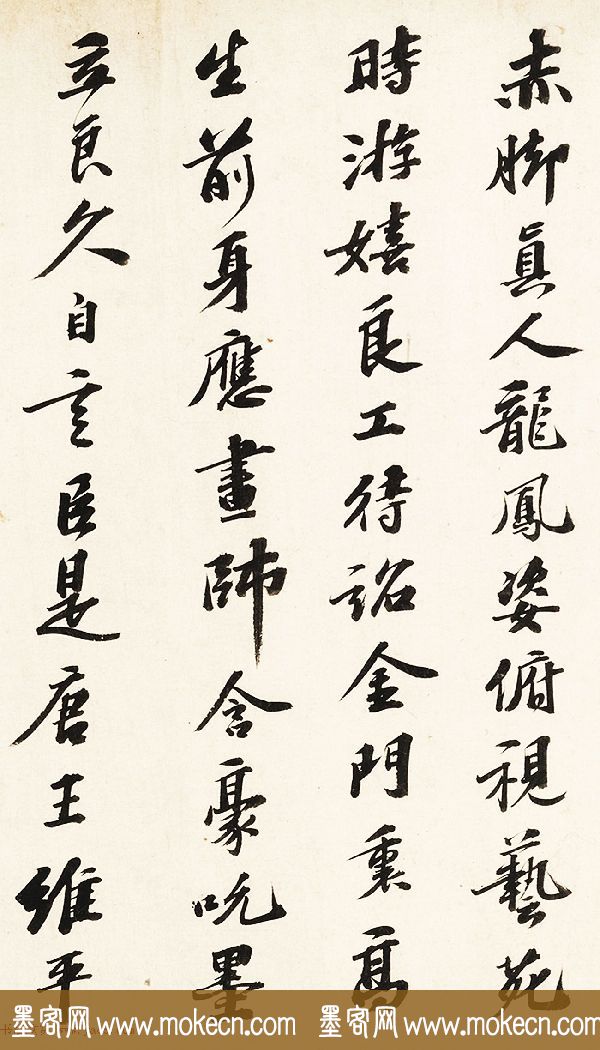 赤脚眞人龍鳳姿俯視藝苑
時游嬉良工待詔金門裏高
生前身應畫師含豪吮墨
立良久自言臣是唐王維平
墨客网 www.mokecn.com 墨客网 www.mokecn.com